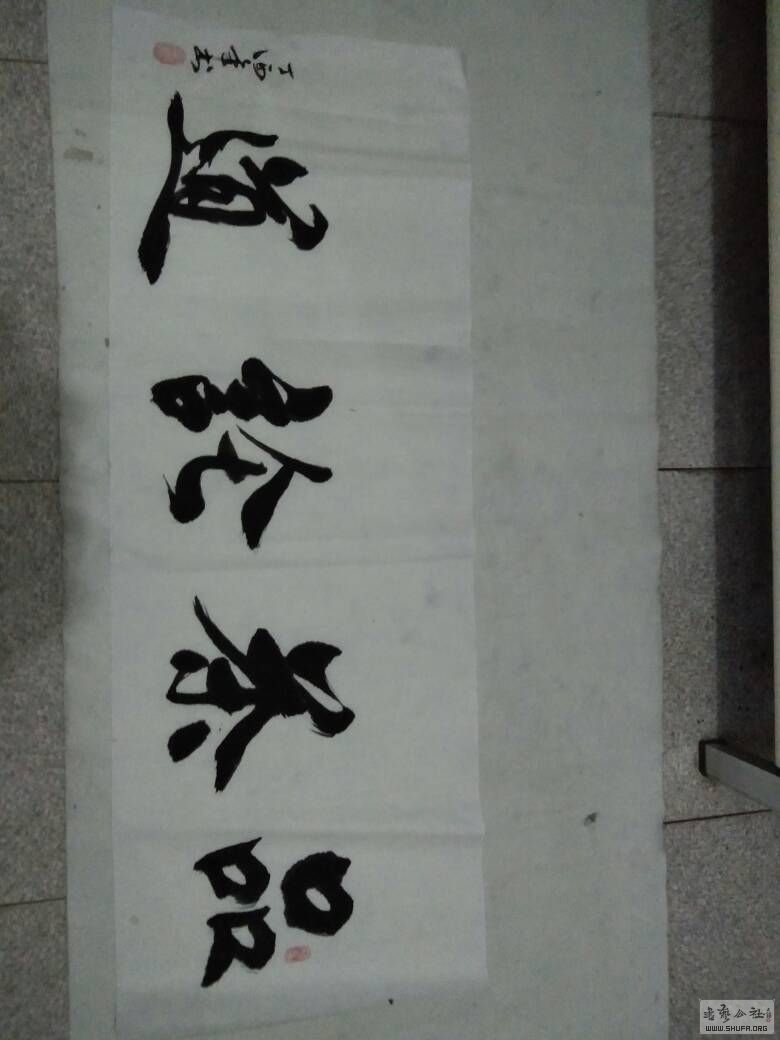 品茶論道
丁酉年书
書藝公社
WWW.SHUFA.ORG